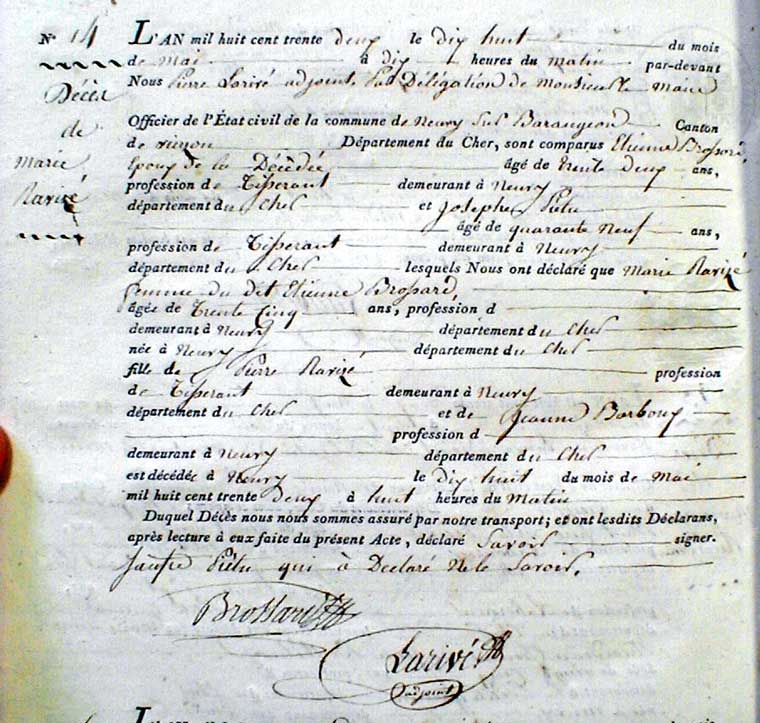 N° 14
Décès
de
marie
Ravizé
L'AN mil huit cent trente deux le dix huit du mois
de mai à dix heures du matin par-devant
Nous Pierre Larivé adjoint, Par Délégation de Monsieur le Maire
Officier de l'État civil de la commune de Neuvy sur Barangeon Canton
de vierzon Département du Cher, sont comparus Etienne Brossard,
Epoux de la Décédée âgé de trente deux ans,
profession de Tisserant demeurant à Neuvy
département du Cher et Josephe Piétu
âgé de quarante Neuf ans,
profession de Tisserant demeurant à Neuvy
département du Cher lesquels Nous ont déclaré que Marie Ravizé
femme du dit Etienne Brossard,
âgée de Trente Cinq ans, profession d
demeurant à Neuvy département du Cher
née à Neuvy département du Cher
fille de Pierre Ravizé profession
de Tisserant demeurant à Neuvy
département du Cher et de Jeanne Barboux
profession d
demeurant à Neuvy département du Cher
est décédée à Neuvy le Dix huit du mois de Mai
mil huit cent trente deux à huit heures du Matin
Duquel Décès nous nous sommes assuré par notre transport; et ont lesdits Déclarans,
après lecture à eux faite du présent Acte, déclaré Savoir signer.
Piétu qui à Déclaré Ne le Savoir.
Brossard
Larivé
adjoint